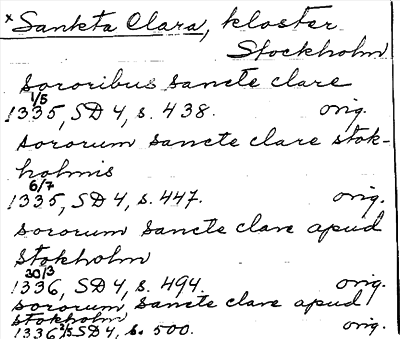 × Sankta Clara, kloster
Stockholm
sororibus sancte clare
1/5
1335, SD 4, s. 438. orig.
sororum sancte clare stok-
holmis
6/7
1335, SD 4, s. 447. orig.
sororum sancte clare apud
stokholm
30/3
1336, SD 4, s. 494. orig.
sororum sancte clare apud
stokholm
1336 2/5 SD 4, s. 500. orig.